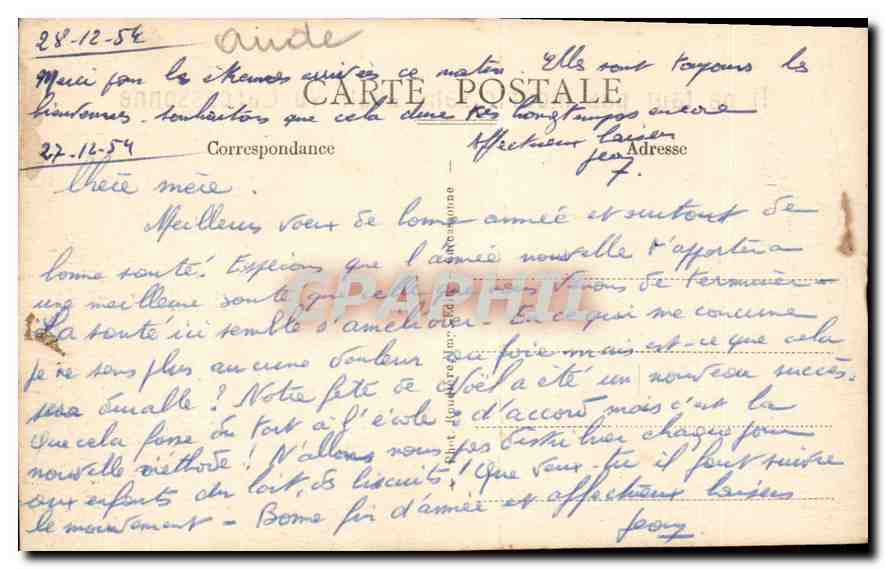 28-12-54 aude
Merci pour les étrennes arrivées ce matin. Elles sont toujours les
CARTE POSTALE
bienvenues. souhaitons que cela dure très longtemps encore
Affectueux baisers
Jean
27-12-54
Correspondance
Adresse
Chère mère.
Meilleurs voeux de bonne année et surtout de
bonne santé! Espérons que l'année nouvelle t'apportera
une meilleure santé que celle que nous venons de terminer -
La santé ici semble s'améliorer - En ce qui me concerne
je ne sens plus aucune douleur au foie mais est-ce que cela
sera durable? Notre fête de Noël a été un nouveau succès.
Que cela fasse du tort à l'école d'accord mais c'est la
nouvelle méthode! N'allons nous pas distribuer chaque jour
aux enfants du lait, des biscuits! Que veux-tu il faut suivre
le mouvement - Bonne fin d'année et affectueux baisers
Jean
CPAPHIL
Carcassonne